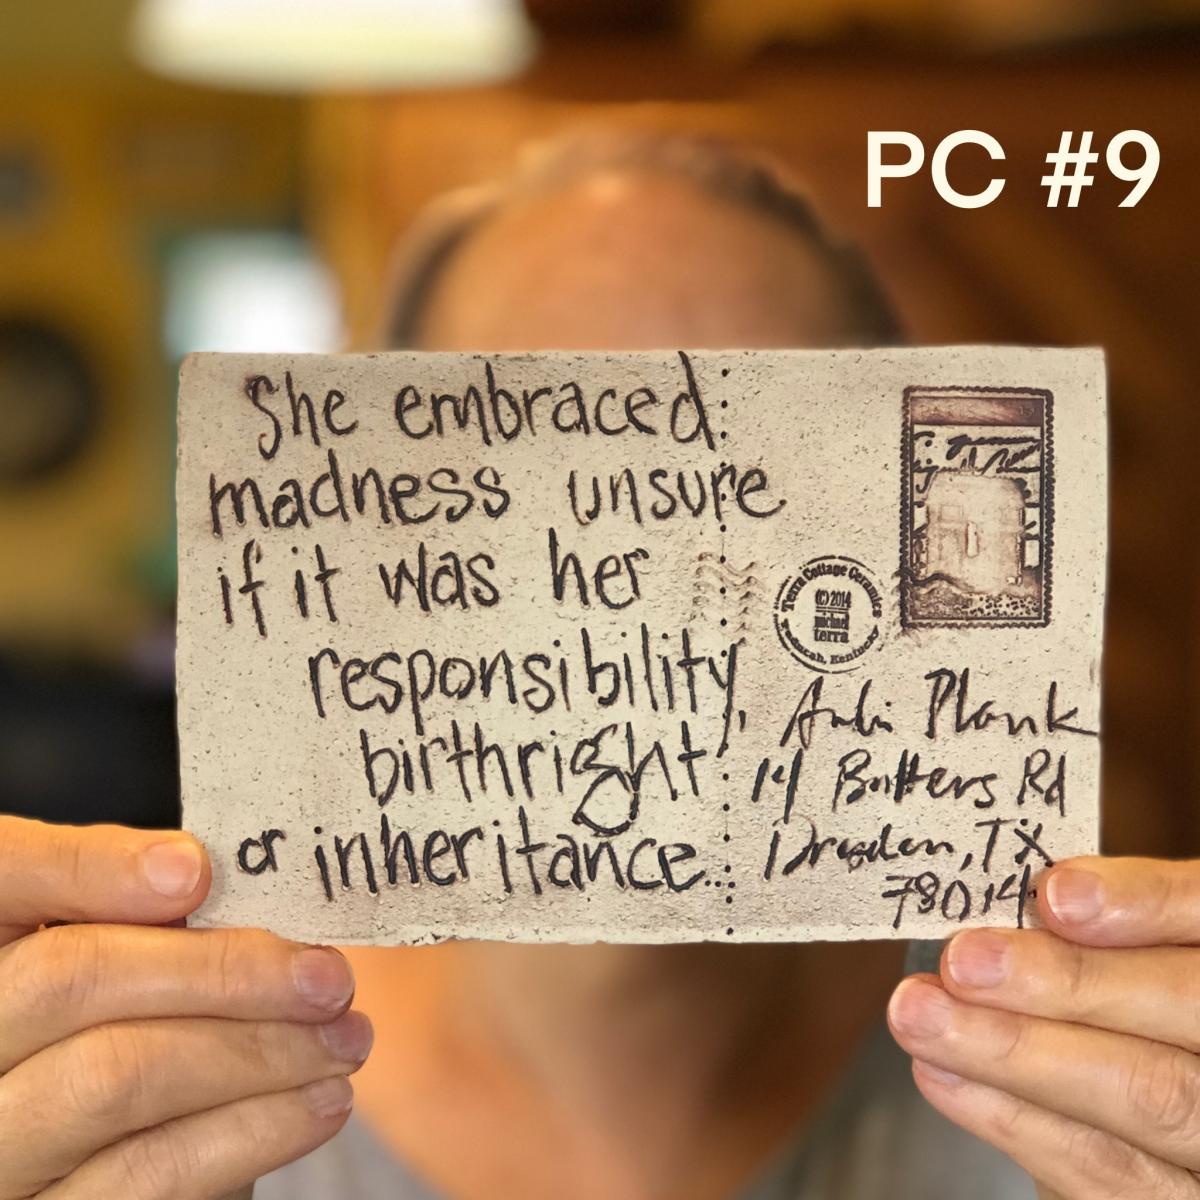 PC #9
She embraced
madness unsure
if it was her
responsibility,
birthright
or inheritance...
Terra Cottage Ceramics
(C) 2014
michael
terra
Paducah, Kentucky
Plank
14 Butters Rd
Dresden, TX
78014